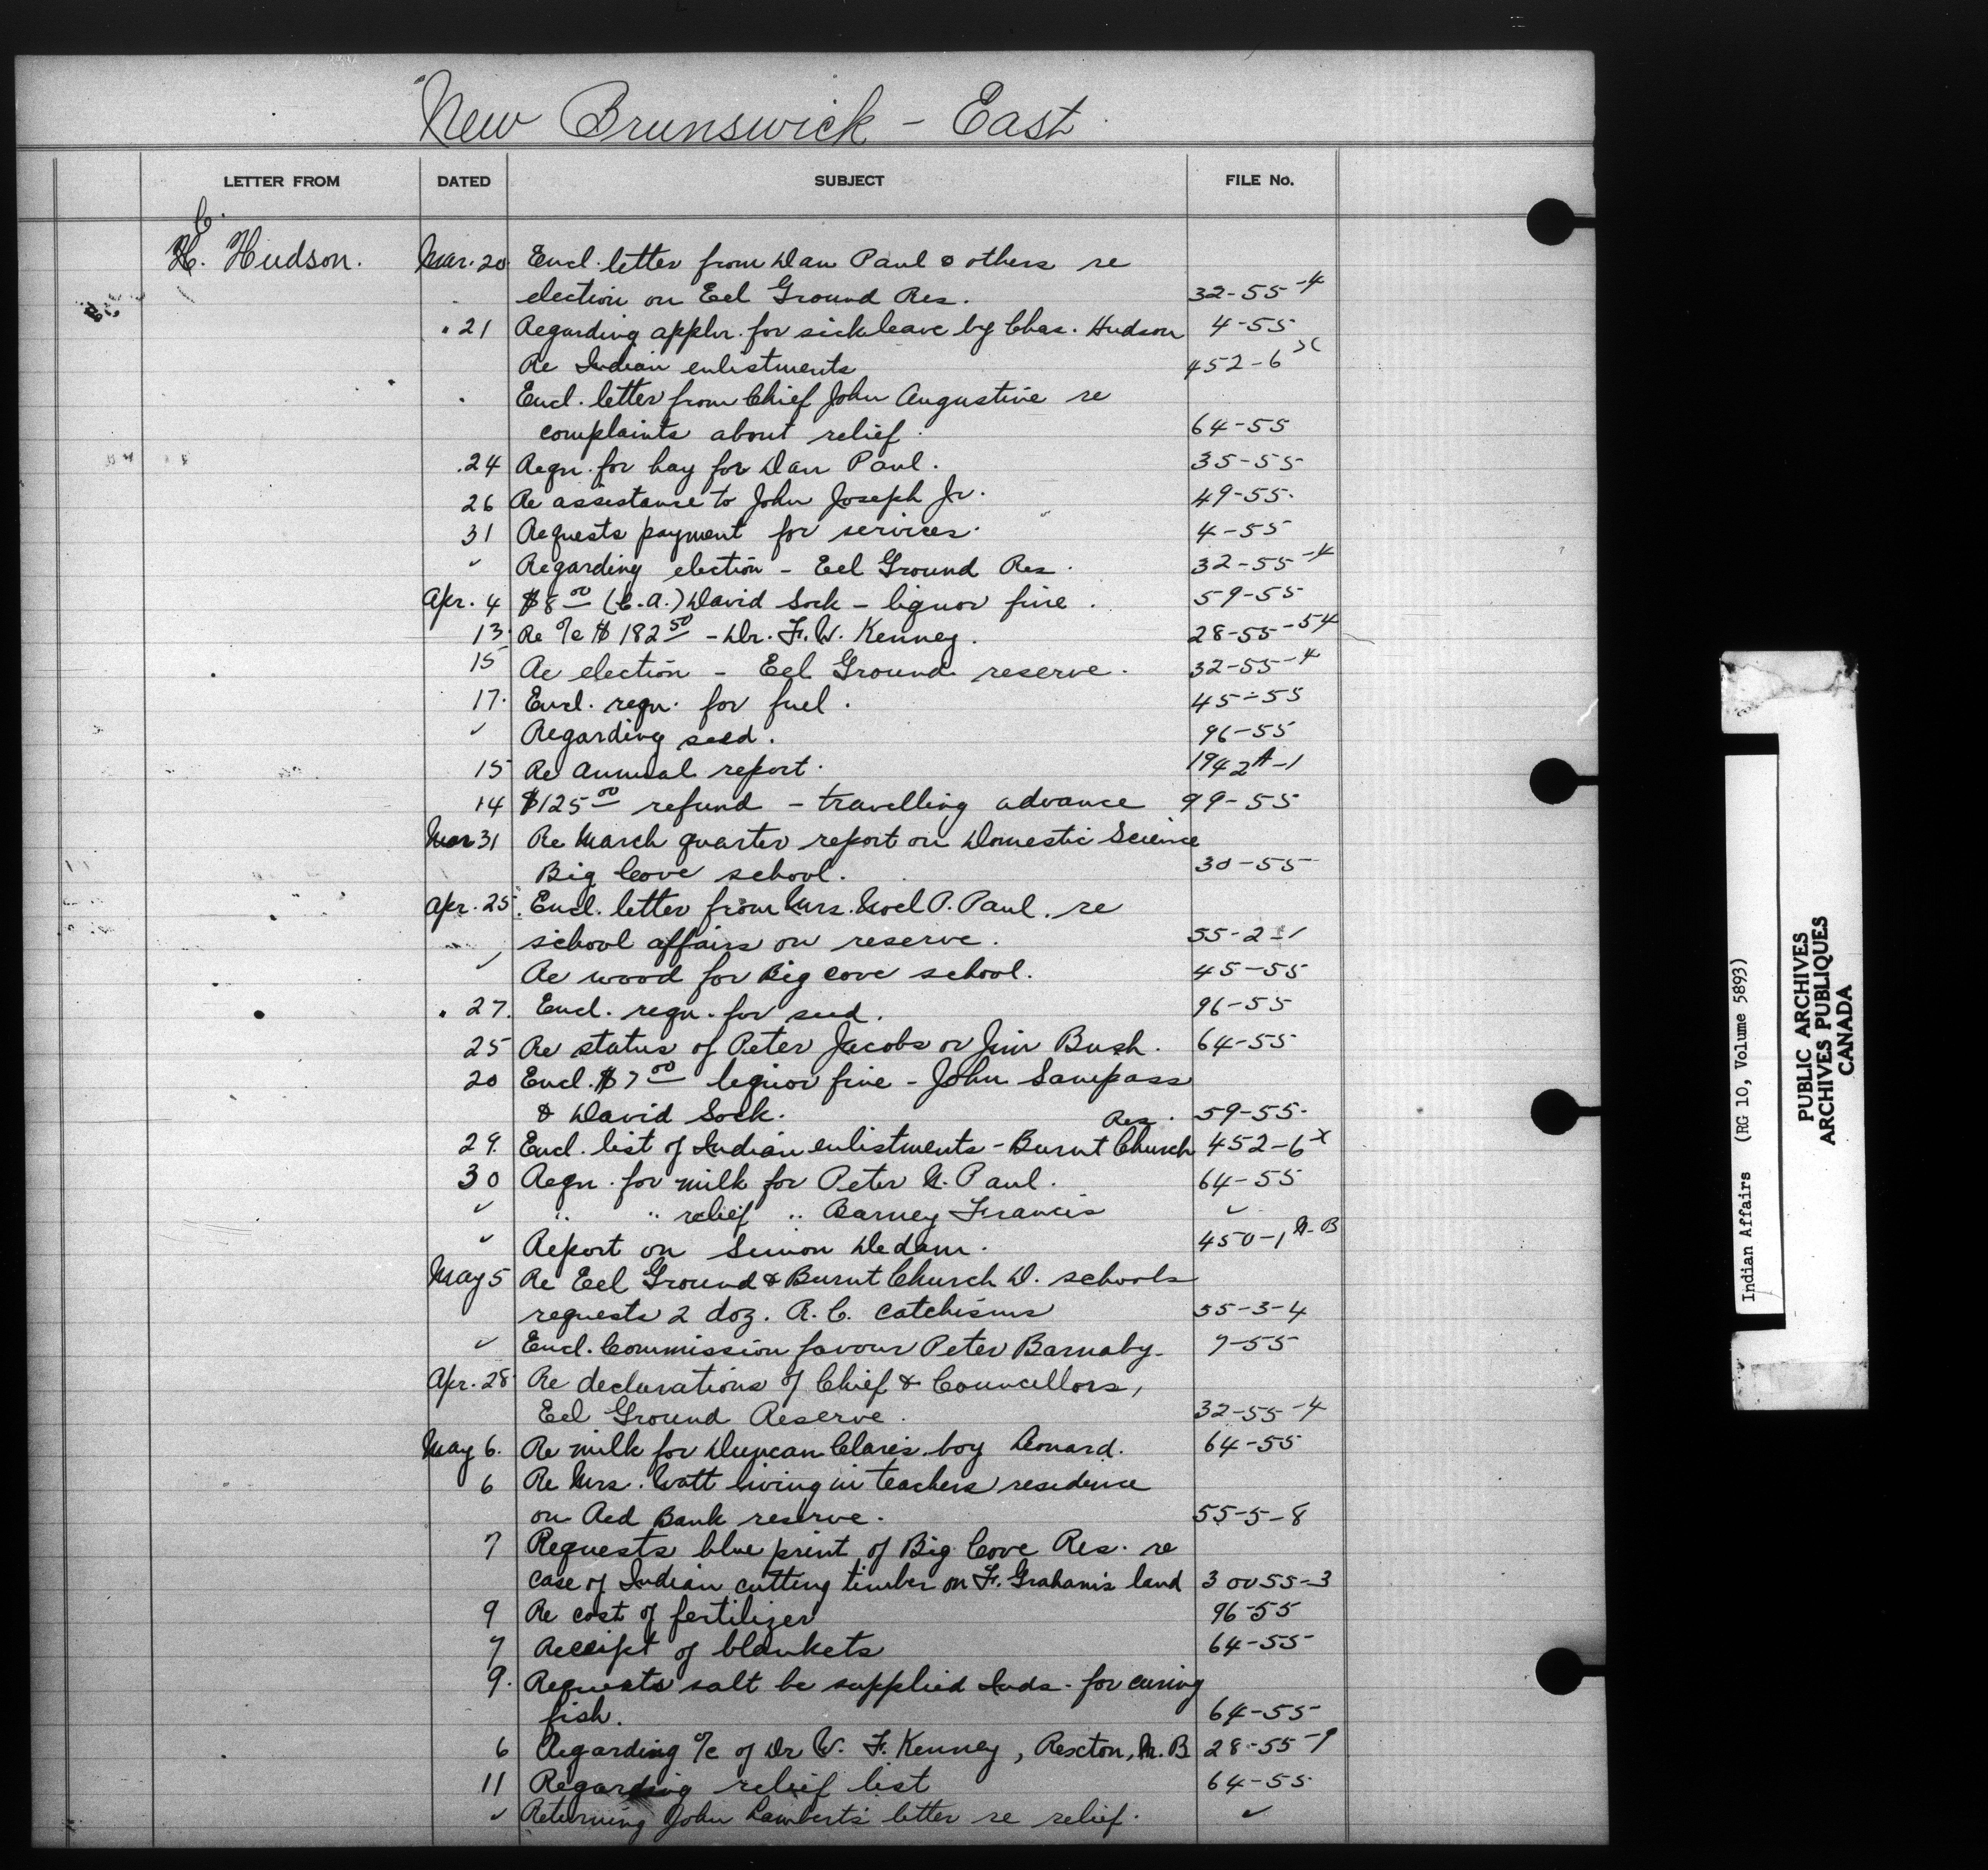 New Brunswick - East
LETTER FROM DATED SUBJECT FILE No.
C.
H. Hudson. Mar. 20 Encl. letter from Dan Paul & others re
election on Eel Ground Res. 32-55-4
21 Regarding appln. for sick leave by Chas. Hudson 4-55
Re Indian enlistments 452-6 X
Encl. letter from Chief John Augustine re
complaints about relief. 64-55
24 Reqn. for hay for Dan Paul. 35-55
26 Re assistance to John Joseph Jr. 49-55.
31 Requests payment for services. 4-55
✓ Regarding election - Eel Ground Res. 32-55-4
Apr. 4 $8 00 (C.A.) David Sock - liquor fine. 59-55
13. Re %c $182 50 - Dr. F. W. Kenney. 28-55-54
15 Re election - Eel Ground reserve. 32-55-4
17. Encl. reqn. for fuel. 45-55
✓ Regarding seed. 96-55
15 Re Annual report. 1942A-1
14 $125 00 refund - travelling advance 99-55
Mar 31 Re March quarter report on Domestic Science
Big Cove school. 30-55
Apr. 25. Encl. letter from Mrs. Noel P. Paul. re
school affairs on reserve. 55-2-1
✓ Re wood for Big Cove school. 45-55
27. Encl. reqn. for seed. 96-55
25 Re status of Peter Jacobs or Jim Bush. 64-55
20 Encl. $7 00 liquor fine - John Sampass
& David Sock. 59-55.
Res.
29. Encl. list of Indian enlistments - Burnt Church 452-6 X
30 Reqn. for milk for Peter N. Paul. 64-55
✓ " " relief " Barney Francis ✓
✓ Report on Simon Dedam. 450-1 N.B
May 5 Re Eel Ground & Burnt Church D. schools
requests 2 doz. R. C. Catchisms 55-3-4
✓ Encl. Commission favour Peter Barnaby. 7-55
Apr. 28 Re declarations of Chief & Councellors,
Eel Ground Reserve. 32-55-4
May 6. Re milk for Duncan Clare's boy Leonard. 64-55
6 Re Mrs. Watt living in teachers residence
on Red Bank reserve. 55-5-8
7 Requests blue print of Big Cove Res. re
case of Indian cutting timber on F. Graham's land 30055-3
9 Re cost of fertilizer 96-55
7 Receipt of blankets 64-55
9. Requests salt be supplied Inds. for curing
fish. 64-55
6 Regarding %c of Dr W. F. Kenney, Rexton, N. B 28-55-9
11 Regarding relief list 64-55
✓ Returning John Lambert's letter re relief. ✓
Indian Affairs (RG 10, Volume 5893)
PUBLIC ARCHIVES
ARCHIVES PUBLIQUES
CANADA